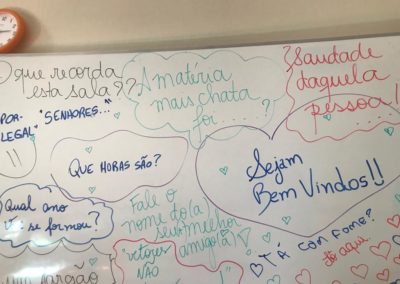 O que recorda
esta sala??
"SENHORES..."
POR-
LEGAL
A matéria
mais chata
foi.....?
Saudade
daquela
pessoa!
QUE HORAS SÃO?
Sejam
Bem Vindos!!
Qual ano
se formou?
Fale o
nome do(a)
seu melhor
amigo(a)
"vetores
NÃO
TÁ COM FOME?
aqui.
um jargão